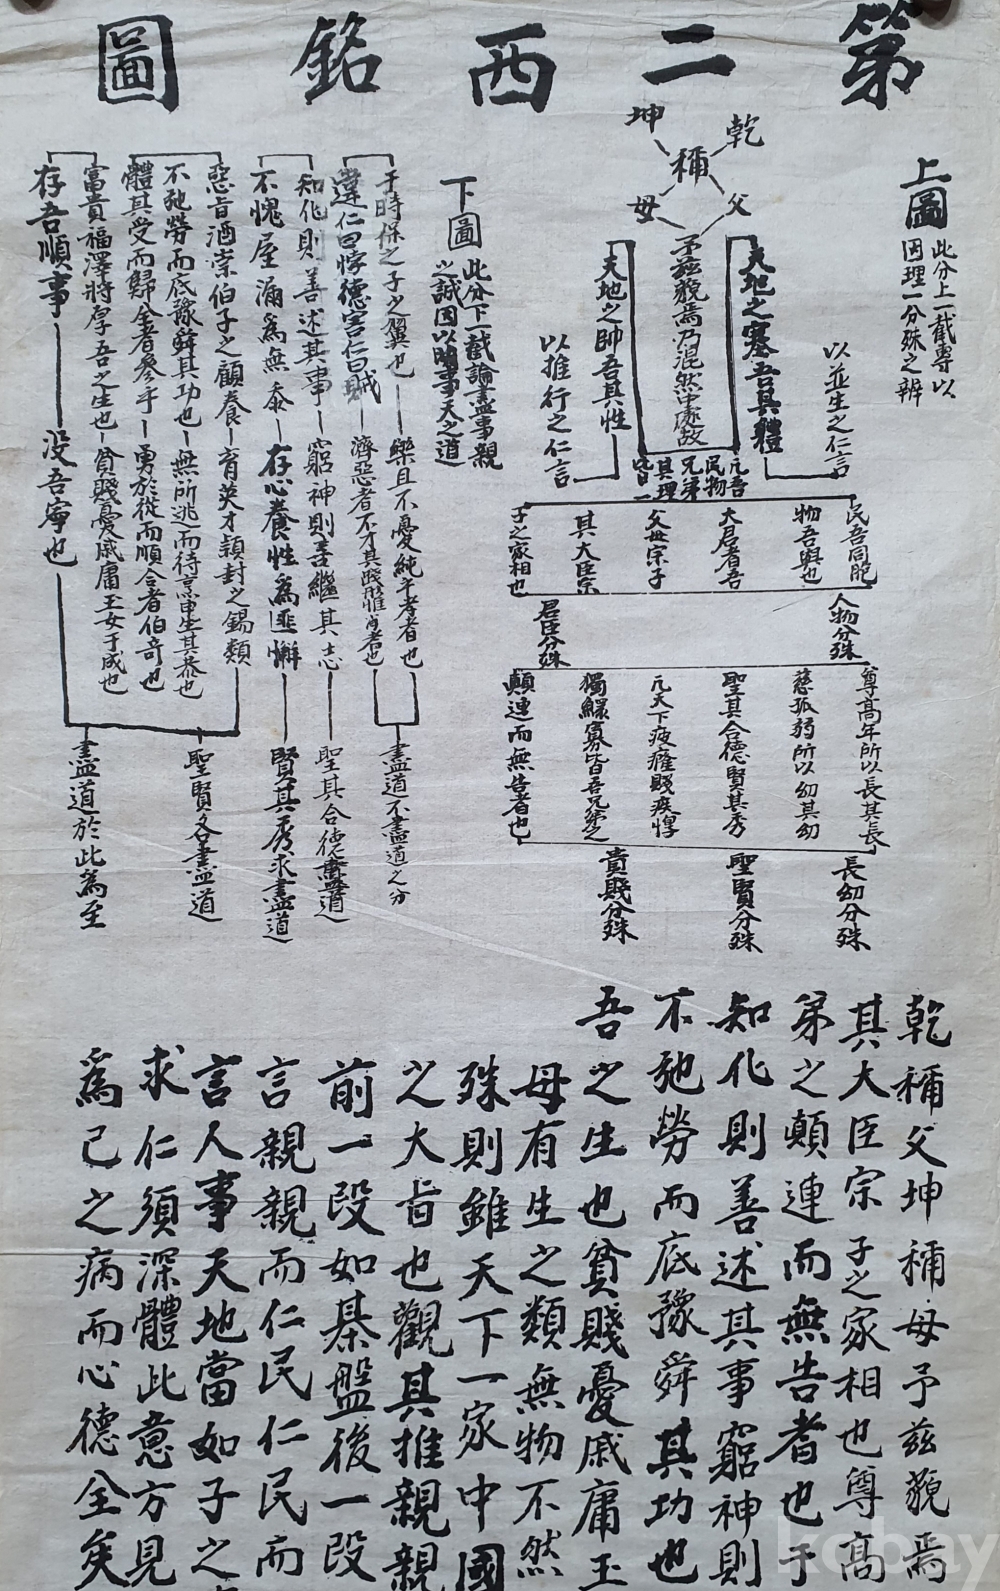 第二西銘圖
上圖
此分上一截專以
因理一分殊之辨
乾
父
稱
坤
母
予玆藐焉乃混然中處故
天地之塞吾其體
天地之帥吾其性
以並生之仁言
以推行之仁言
民吾同胞
物吾與也
大君者吾
父母宗子
其大臣宗
子之家相也
人物分殊
君臣分殊
尊高年所以長其長
慈孤弱所以幼其幼
聖其合德賢其秀
凡天下疲癃賤疾惸
獨鰥寡皆吾兄弟之
顛連而無告者也
長幼分殊
聖賢分殊
貴賤分殊
下圖
此分下一截論盡事親
之誠因以明事天之道
于時保之子之翼也
樂且不憂純乎孝者也
違仁曰悖德害仁曰賊
濟惡者不才其踐形惟肖者也
盡道不盡道之分
知化則善述其事
窮神則善繼其志
聖其合德盡道
不愧屋漏爲無忝
存心養性爲匪懈
賢其秀求盡道
惡旨酒崇伯子之顧養
育英才穎封之錫類
不弛勞而底豫舜其功也
無所逃而待烹申生其恭也
體其受而歸全者參乎
勇於從而順令者伯奇也
聖賢各盡道
富貴福澤將厚吾之生也
貧賤憂戚庸玉女于成也
存吾順事
沒吾寧也
盡道於此爲至
乾稱父坤稱母予玆藐焉
其大臣宗子之家相也尊高
弟之顛連而無告者也于
知化則善述其事窮神則
不弛勞而底豫舜其功也
吾之生也貧賤憂戚庸玉
母有生之類無物不然
殊則雖天下一家中國
之大旨也觀其推親親
前一段如棊盤後一段
言親親而仁民仁民而
言人事天地當如子之
求仁須深體此意方見
爲己之病而心德全矣
kobay